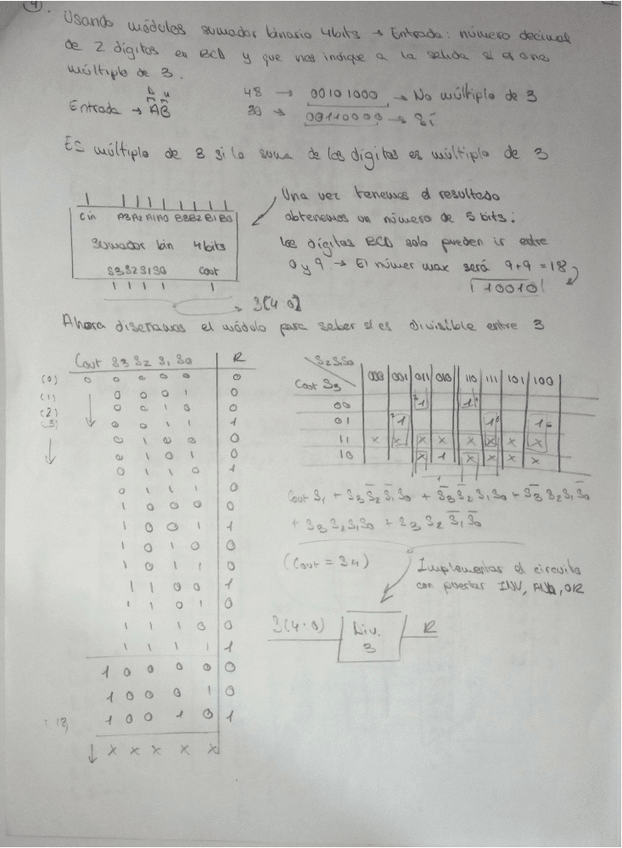 4.
Usando módulos sumador binario 4bits → Entrada: número decimal
de 2 dígitos en BCD y que nos indique a la salida si es
múltiplo de 3.
D U
Entrada → A B
48 → 00101000 → No múltiplo de 3
30 → 00110000 → Sí
Es múltiplo de 3 si la suma de los dígitos es múltiplo de 3
Cin A3A2A1A0 B3B2B1B0
Sumador bin 4bits
S3S2S1S0 Cout
S(4:0)
Una vez tenemos el resultado
obtenemos un número de 5 bits.
Los dígitos BCD solo pueden ir entre
0 y 9 → El númer max será 9+9=18
10010
Ahora diseñamos el módulo para saber si es divisible entre 3
Cout S3 S2 S1 S0 R
(0) 0 0 0 0 0 0
(1) 0 0 0 1 0
(2) 0 0 1 0 0
(3) 0 0 1 1 1
0 1 0 0 0
0 1 0 1 0
0 1 1 0 1
0 1 1 1 0
1 0 0 0 0
1 0 0 1 1
1 0 1 0 0
1 0 1 1 0
1 1 0 0 1
1 1 0 1 0
1 1 1 0 0
1 1 1 1 1
1 0 0 0 0 0
1 0 0 0 1 0
1 0 0 1 0 1
x x x x x
S2S1S0
Cout S3
000 001 011 010 110 111 101 100
00 1 1
01 1 1 1
11 x x x x x x x x
10 x 1 x x x x
Cout S1 + S3 S̅2 S̅1 S0 + S̅3 S̅2 S1 S0 + S̅3 S2 S1 S̅0
+ S3 S2 S1 S0 + S3 S2 S̅1 S̅0
(Cout = S4)
Implementas el circuito
con puertas INV, AND, OR
S(4:0) Div. 3 R